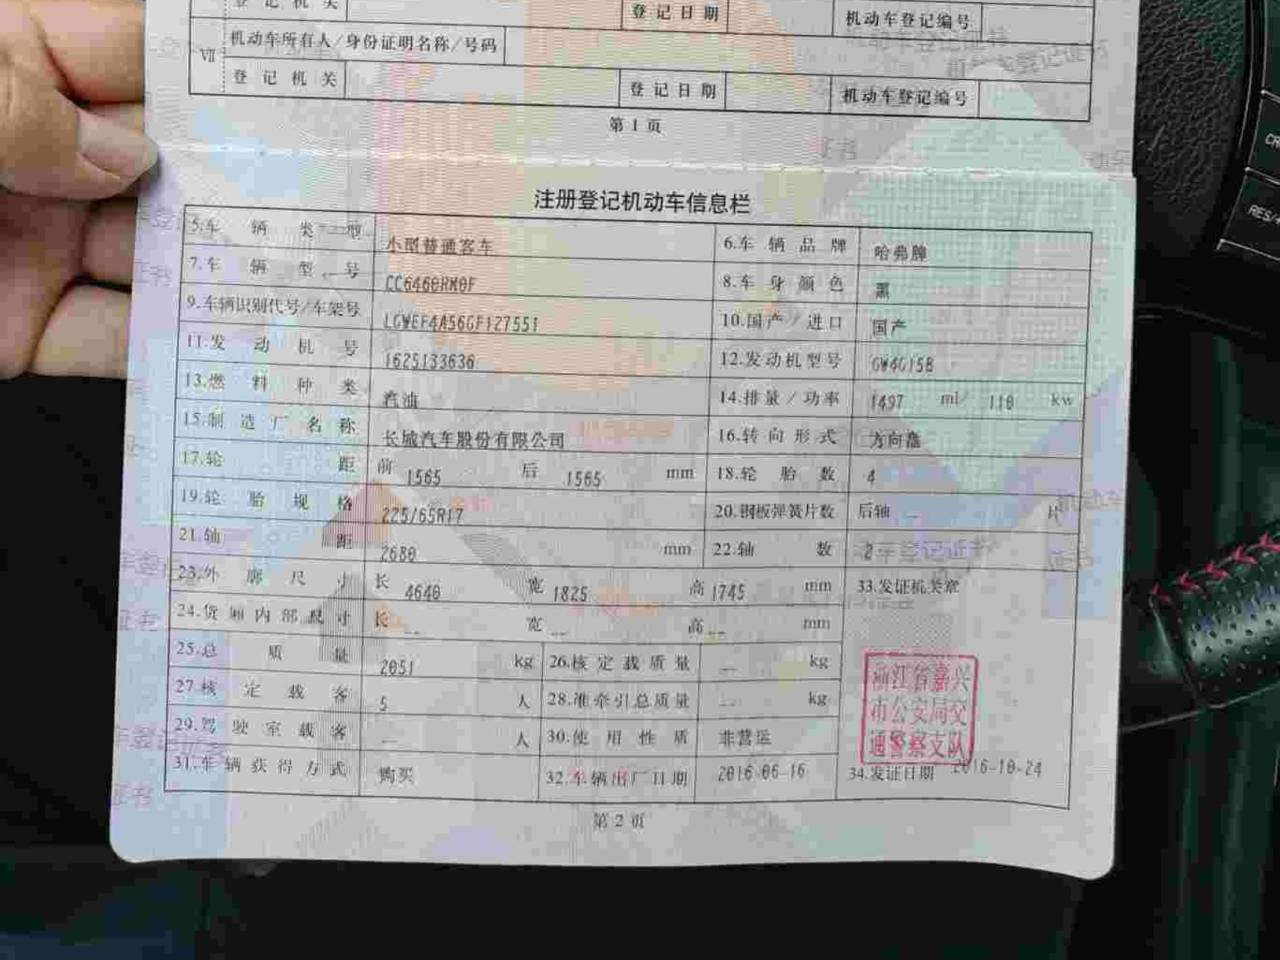 登记机关 登记日期 机动车登记编号
VII 机动车所有人/身份证明名称/号码
登记机关 登记日期 机动车登记编号
第1页
注册登记机动车信息栏
5.车辆类型 小型普通客车 6.车辆品牌 哈弗牌
7.车辆型号 CC6460RM0F 8.车身颜色 黑
9.车辆识别代号/车架号 LGWEF4A56GF127551 10.国产/进口 国产
11.发动机号 1625133636 12.发动机型号 GW4G15B
13.燃料种类 汽油 14.排量/功率 1497 ml/ 110 kw
15.制造厂名称 长城汽车股份有限公司 16.转向形式 方向盘
17.轮距 前 1565 后 1565 mm 18.轮胎数 4
19.轮胎规格 225/65R17 20.钢板弹簧片数 后轴 -- 片
21.轴距 2680 mm 22.轴数 2
23.外廓尺寸 长 4640 宽 1825 高 1745 mm 33.发证机关章
24.货厢内部尺寸 长 -- 宽 -- 高 -- mm
25.总质量 2051 kg 26.核定载质量 -- kg
27.核定载客 5 人 28.准牵引总质量 -- kg
29.驾驶室载客 -- 人 30.使用性质 非营运
31.车辆获得方式 购买 32.车辆出厂日期 2016-06-16 34.发证日期 2016-10-24
浙江省嘉兴
市公安局交
通警察支队
第2页